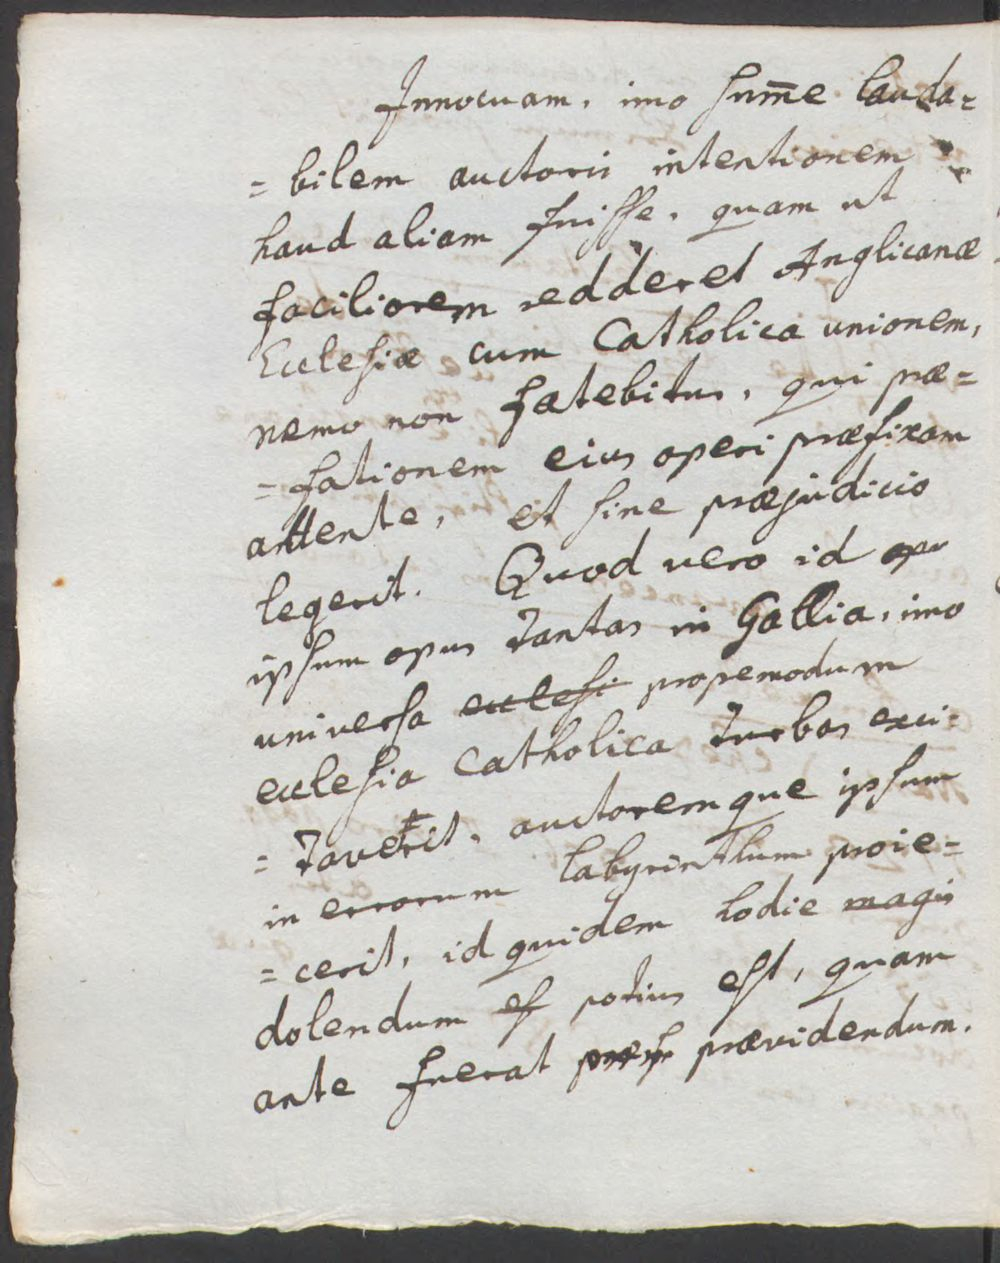 Innocuam, imo sum̄e lauda=
=bilem auctoris intentionem
haud aliam fuisse, quam ut
faciliorem redderet Anglicanæ
Ecclesiæ cum Catholica unionem,
nemo non fatebitur, qui præ=
=fationem eius operi præfixam
attente, et sine præjudicio
legerit. Quod vero id opu
ipsum opus tantas in Gallia, imo
universa ecclesi propemodum
ecclesia Catholica turbas exci=
=taverit, auctoremque ipsum
in errorum labyrinthum proie=
=cerit, id quidem hodie magis
dolendum est potius est, quam
ante fuerat prævidendum.